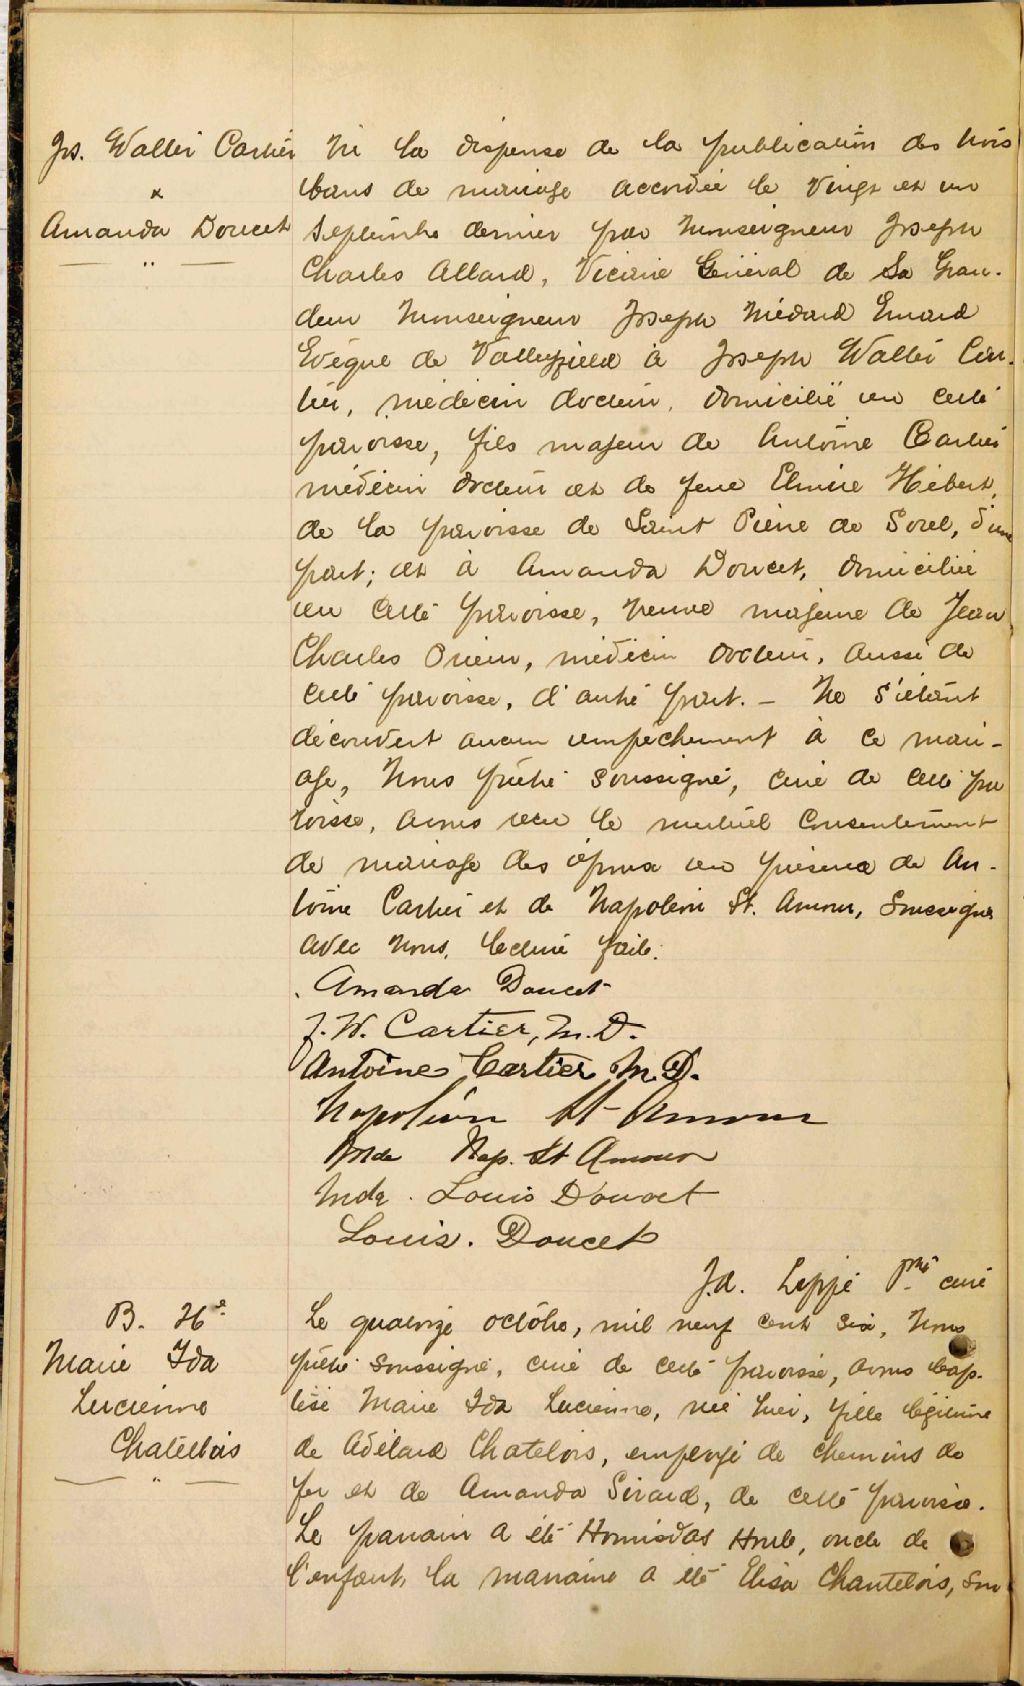 Jos. Walter Cartier
x
Amanda Doucet
Vu la dispense de la publication des trois
bans de mariage accordée le vingt et un
Septembre dernier par Monseigneur Joseph
Charles Allard, Vicaire Général de Sa Gran-
deur Monseigneur Joseph Médard Emard
Evêque de Valleyfield à Joseph Walter Car-
tier, médecin docteur, domicilié en cette
paroisse, fils majeur de Antoine Cartier
médecin docteur et de feue Elmire Hébert,
de la paroisse de Saint Pierre de Sorel, d'une
part; et à Amanda Doucet, domiciliée
en cette paroisse, veuve majeure de Jean
Charles Orieux, médecin docteur, aussi de
cette paroisse, d'autre part. – Ne s'étant
découvert aucun empêchement à ce mari-
age, Nous prêtre soussigné, curé de cette pa
roisse, avons reçu le mutuel consentement
de mariage des époux en présence de An-
toine Cartier et de Napoléon St. Amour, Soussignés
avec nous, lecture faite.
Amanda Doucet
J. W. Cartier, M. D.
Antoine Cartier M. D.
Napoléon St-Amour
Mde Nap. St Amour
Mde. Louis Doucet
Louis. Doucet
J. A. Lippé Ptre curé
B. 76e
Marie Ida
Lucienne
Chatelois
Le quatorze octobre, mil neuf cent six, Nous
prêtre soussigné, curé de cette paroisse, avons bap-
tisé Marie Ida Lucienne, née hier, fille légitime
de Adélard Chatelois, employé de chemins de
fer et de Amanda Sirard, de cette paroisse.
Le parrain a été Homisdas Houle, oncle de
l'enfant, la marraine a été Elisa Chantelois, son